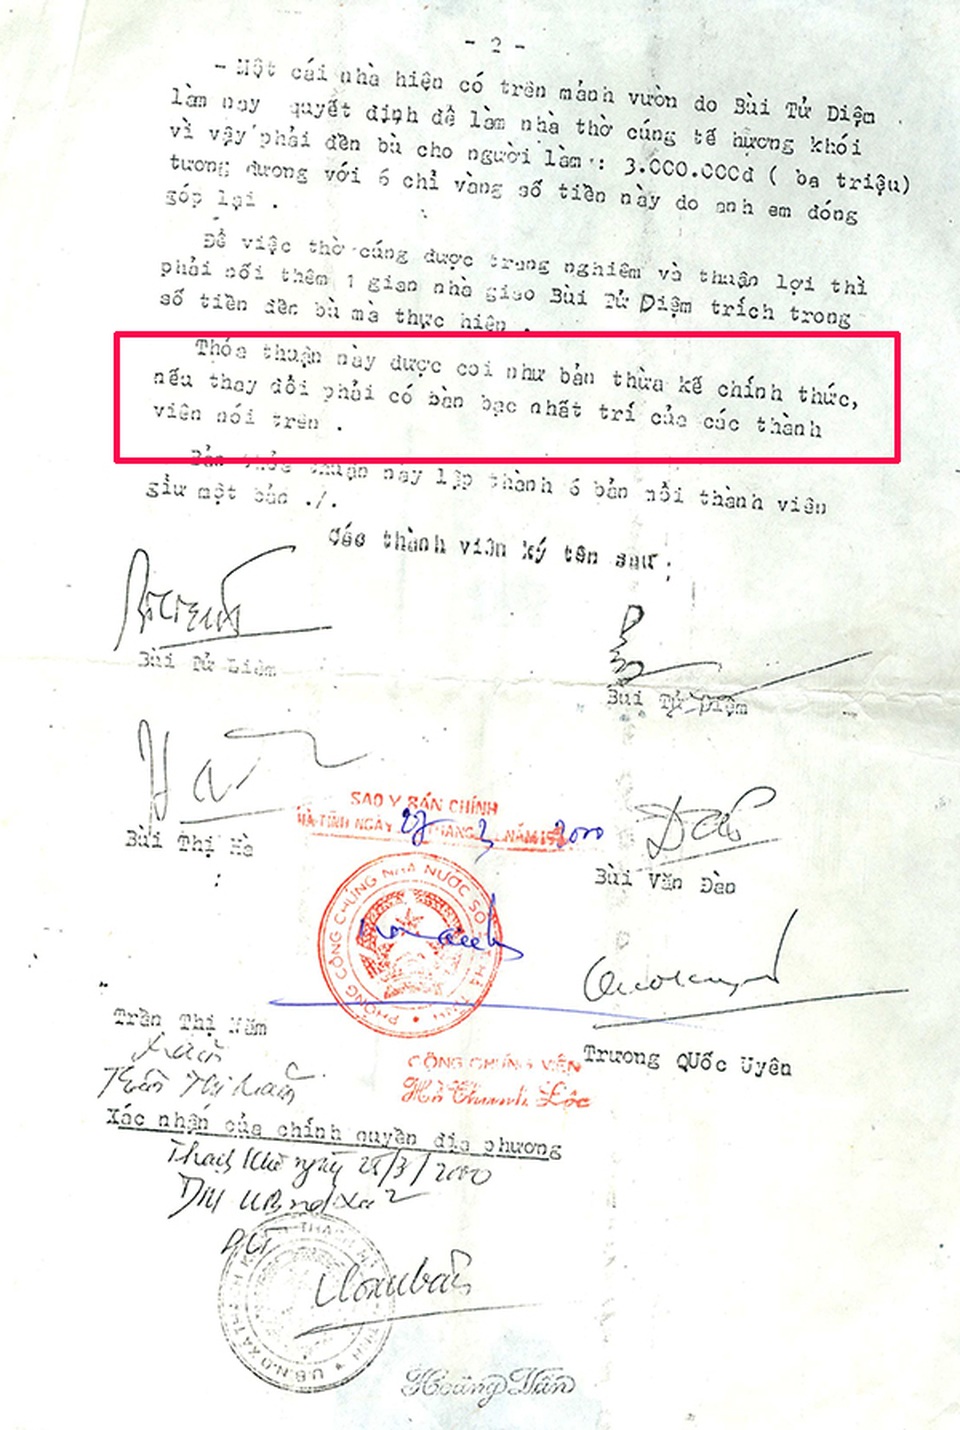 - 2 -
- Một cái nhà hiện có trên mảnh vườn do Bùi Tử Diệm
làm nay quyết định để làm nhà thờ cúng tế hương khói
vì vậy phải đền bù cho người làm : 3.000.000đ ( ba triệu)
tương đương với 6 chỉ vàng số tiền này do anh em đóng
góp lại .
Để việc thờ cúng được trang nghiêm và thuận lợi thì
phải nối thêm 1 gian nhà giao Bùi Tử Diệm trích trong
số tiền đền bù mà thực hiện .
Thỏa thuận này được coi như bản thừa kế chính thức,
nếu thay đổi phải có bàn bạc nhất trí của các thành
viên nói trên .
Bản thỏa thuận này lập thành 6 bản mỗi thành viên
giữ một bản ./.
Các thành viên ký tên sau :
Bùi Tử Liêm
Bùi Tử Diệm
Hà
SAO Y BẢN CHÍNH
HÀ TĨNH NGÀY 28 THANG 3 NĂM 2000
Bùi Thị Hà
Đào
Bùi Văn Đào
PHÒNG CÔNG CHỨNG NHÀ NƯỚC SỐ 1 HÀ TĨNH
Trần Thị Năm
Trương QUốc Uyên
Trần Thị Năm
CÔNG CHỨNG VIÊN
Hồ Thanh Lộc
Xác nhận của chính quyền địa phương
Thạch Khê ngày 28/3/2000
TM UBND xã
Hoàng Vân